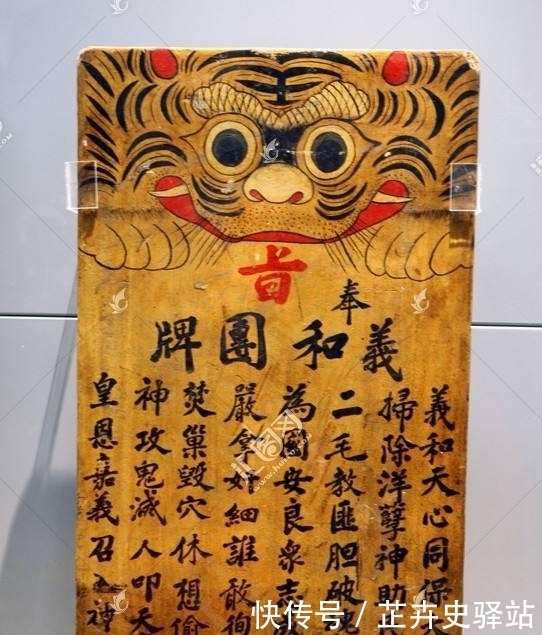 奉
旨
義和團牌
義和天心同保
掃除洋孽神助
二毛教匪胆破
為國安良衆志
嚴拿奸細誰敢徇
焚巢毀穴休想偷
神攻鬼滅人叩天
皇恩嘉義召神
快传号 / 芷卉史驿站